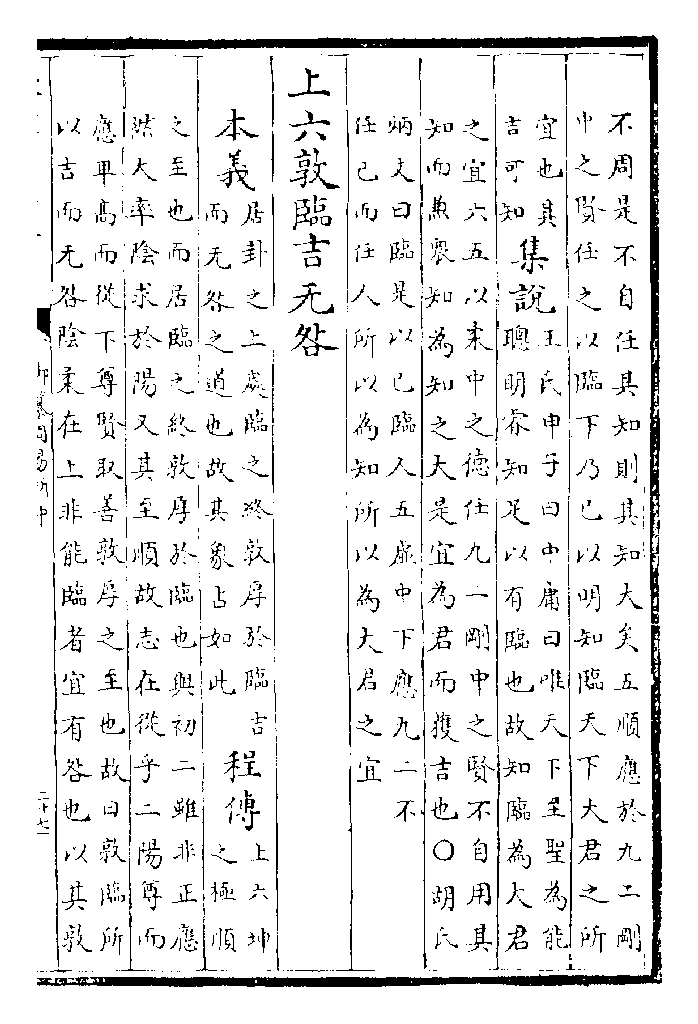 不周是不自任其知則其知大矣五順應於九二剛
中之賢任之以臨下乃己以明知臨天下大君之所
宜也其
吉可知
集說
王氏申子曰中庸曰唯天下至聖為能
聰明睿知足以有臨也故知臨為大君
之宜六五以柔中之德任九二剛中之賢不自用其
知而兼衆知為知之大是宜為君而獲吉也○胡氏
炳文曰臨是以己臨人五虛中下應九二不
任己而任人所以為知所以為大君之宜
上六敦臨吉无咎
本義
居卦之上處臨之終敦厚於臨吉
而无咎之道也故其象占如此
程傳
上六坤
之極順
之至也而居臨之終敦厚於臨也與初二雖非正應
然大率陰求於陽又其至順故志在從乎二陽尊而
應卑高而從下尊賢取善敦厚之至也故曰敦臨所
以吉而无咎陰柔在上非能臨者宜有咎也以其敦
御纂周易折中
二十七